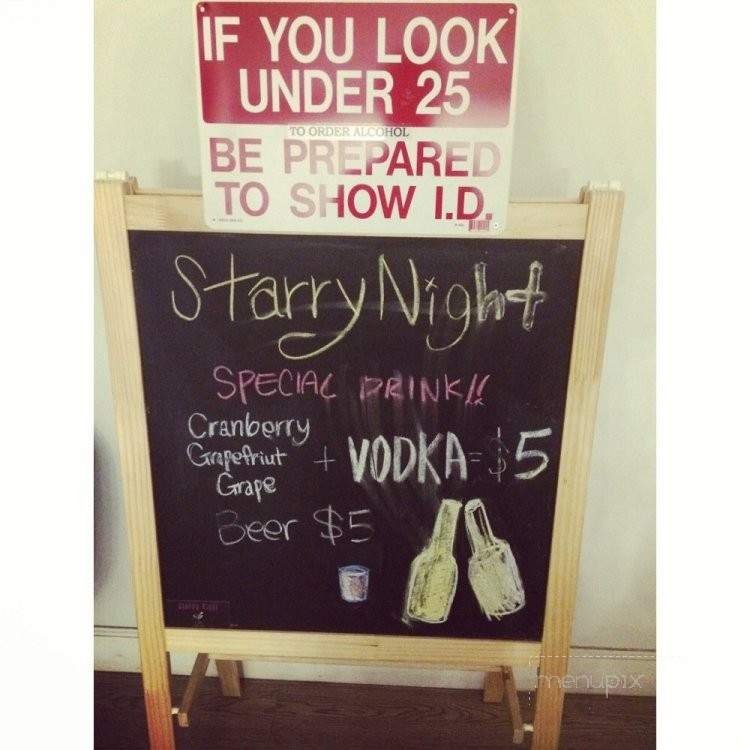 IF YOU LOOK
UNDER 25
TO ORDER ALCOHOL
BE PREPARED
TO SHOW I.D.
Starry Night
SPECIAL DRINK!!
Cranberry
Grapefriut + VODKA = $5
Grape
Beer $5
Starry Night
menupix